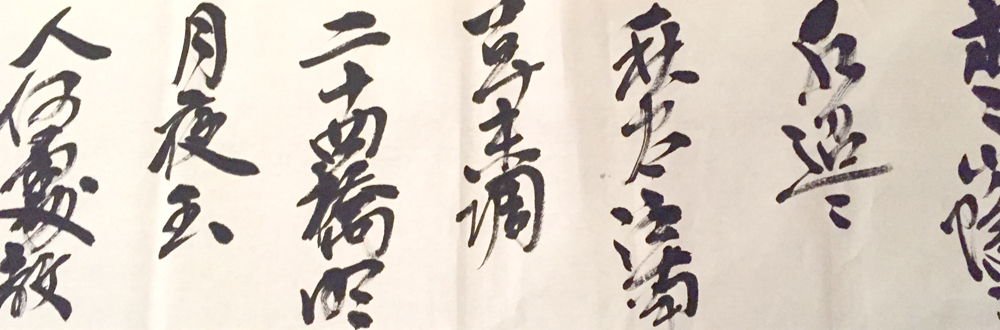 山隱
水迢〻
秋尽江南
草未调
二十四橋明
月夜玉
人何處教